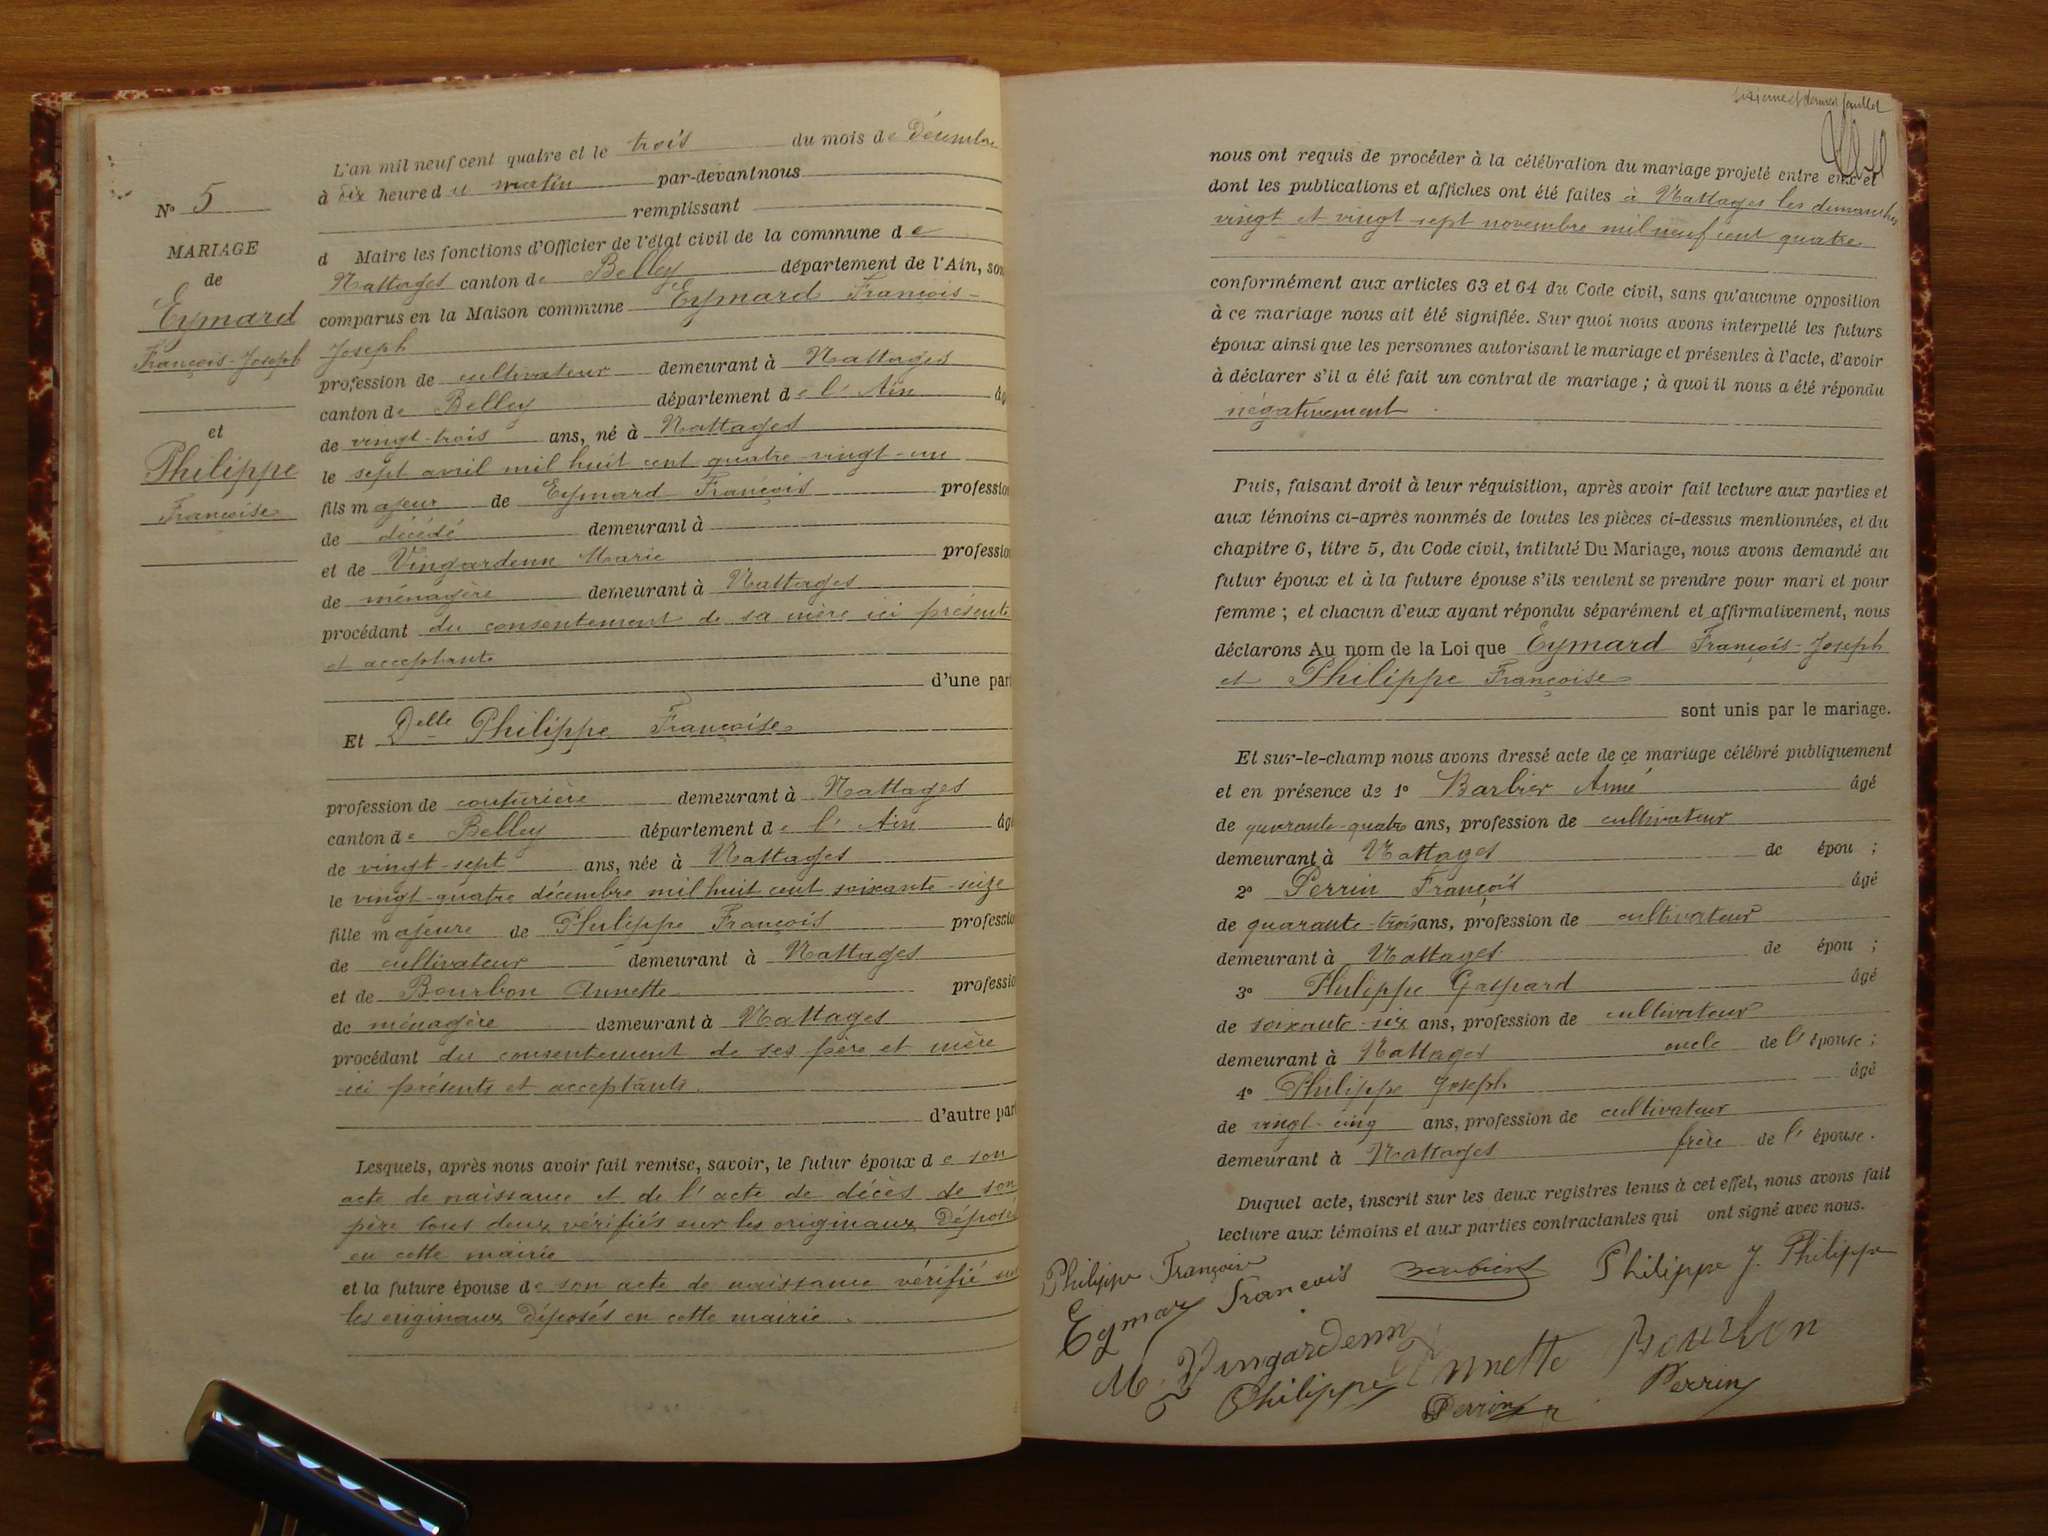 N° 5
MARIAGE
de
Eymard
François-Joseph
et
Philippe
Françoise
L'an mil neuf cent quatre et le trois du mois de Décembre
à dix heure du matin par-devant nous
remplissant
d Maire les fonctions d'Officier de l'état civil de la commune de
Nattages canton de Belley département de l'Ain, son
comparus en la Maison commune Eymard François-
Joseph
profession de cultivateur demeurant à Nattages
canton de Belley département de l'Ain âg
de vingt-trois ans, né à Nattages
le sept avril mil huit cent quatre-vingt-un
fils majeur de Eymard François profession
de décédé demeurant à
et de Vingardenn Marie profession
de ménagère demeurant à Nattages
procédant du consentement de sa mère ici présente
et acceptante
d'une part
Et Delle Philippe Françoise
profession de couturière demeurant à Nattages
canton de Belley département de l'Ain âgé
de vingt-sept ans, née à Nattages
le vingt-quatre décembre mil huit cent soixante-seize
fille majeure de Philippe François professio
de cultivateur demeurant à Nattages
et de Bourbon Annette professio
de ménagère demeurant à Nattages
procédant du consentement de ses père et mère
ici présents et acceptants.
d'autre part
Lesquels, après nous avoir fait remise, savoir, le futur époux de son
acte de naissance et de l'acte de décès de son
père tous deux vérifiés sur les originaux Déposés
en cette mairie
et la future épouse de son acte de naissance vérifié sur
les originaux Déposés en cette mairie.
sixième et dernier feuillet
nous ont requis de procéder à la célébration du mariage projeté entre eux et
dont les publications et affiches ont été faites à Nattages les dimanches
vingt et vingt-sept novembre mil neuf cent quatre
conformément aux articles 63 et 64 du Code civil, sans qu'aucune opposition
à ce mariage nous ait été signifiée. Sur quoi nous avons interpellé les futurs
époux ainsi que les personnes autorisant le mariage et présentes à l'acte, d'avoir
à déclarer s'il a été fait un contrat de mariage ; à quoi il nous a été répondu
négativement.
Puis, faisant droit à leur réquisition, après avoir fait lecture aux parties et
aux témoins ci-après nommés de toutes les pièces ci-dessus mentionnées, et du
chapitre 6, titre 5, du Code civil, intitulé Du Mariage, nous avons demandé au
futur époux et à la future épouse s'ils veulent se prendre pour mari et pour
femme ; et chacun d'eux ayant répondu séparément et affirmativement, nous
déclarons Au nom de la Loi que Eymard François-Joseph
et Philippe Françoise
sont unis par le mariage.
Et sur-le-champ nous avons dressé acte de ce mariage célébré publiquement
et en présence de 1° Barbier Aimé âgé
de quarante-quatre ans, profession de cultivateur
demeurant à Nattages de épou ;
2° Perrin François âgé
de quarante-trois ans, profession de cultivateur
demeurant à Nattages de épou ;
3° Philippe Gaspard âgé
de soixante-six ans, profession de cultivateur
demeurant à Nattages oncle de l'épouse ;
4° Philippe Joseph âgé
de vingt-cinq ans, profession de cultivateur
demeurant à Nattages frère de l'épouse.
Duquel acte, inscrit sur les deux registres tenus à cet effet, nous avons fait
lecture aux témoins et aux parties contractantes qui ont signé avec nous.
Philippe Françoise
Eymar Francois Philippe J. Philippe
M. Vingardenn Annette Bourbon
Philippe Perrin Perrin